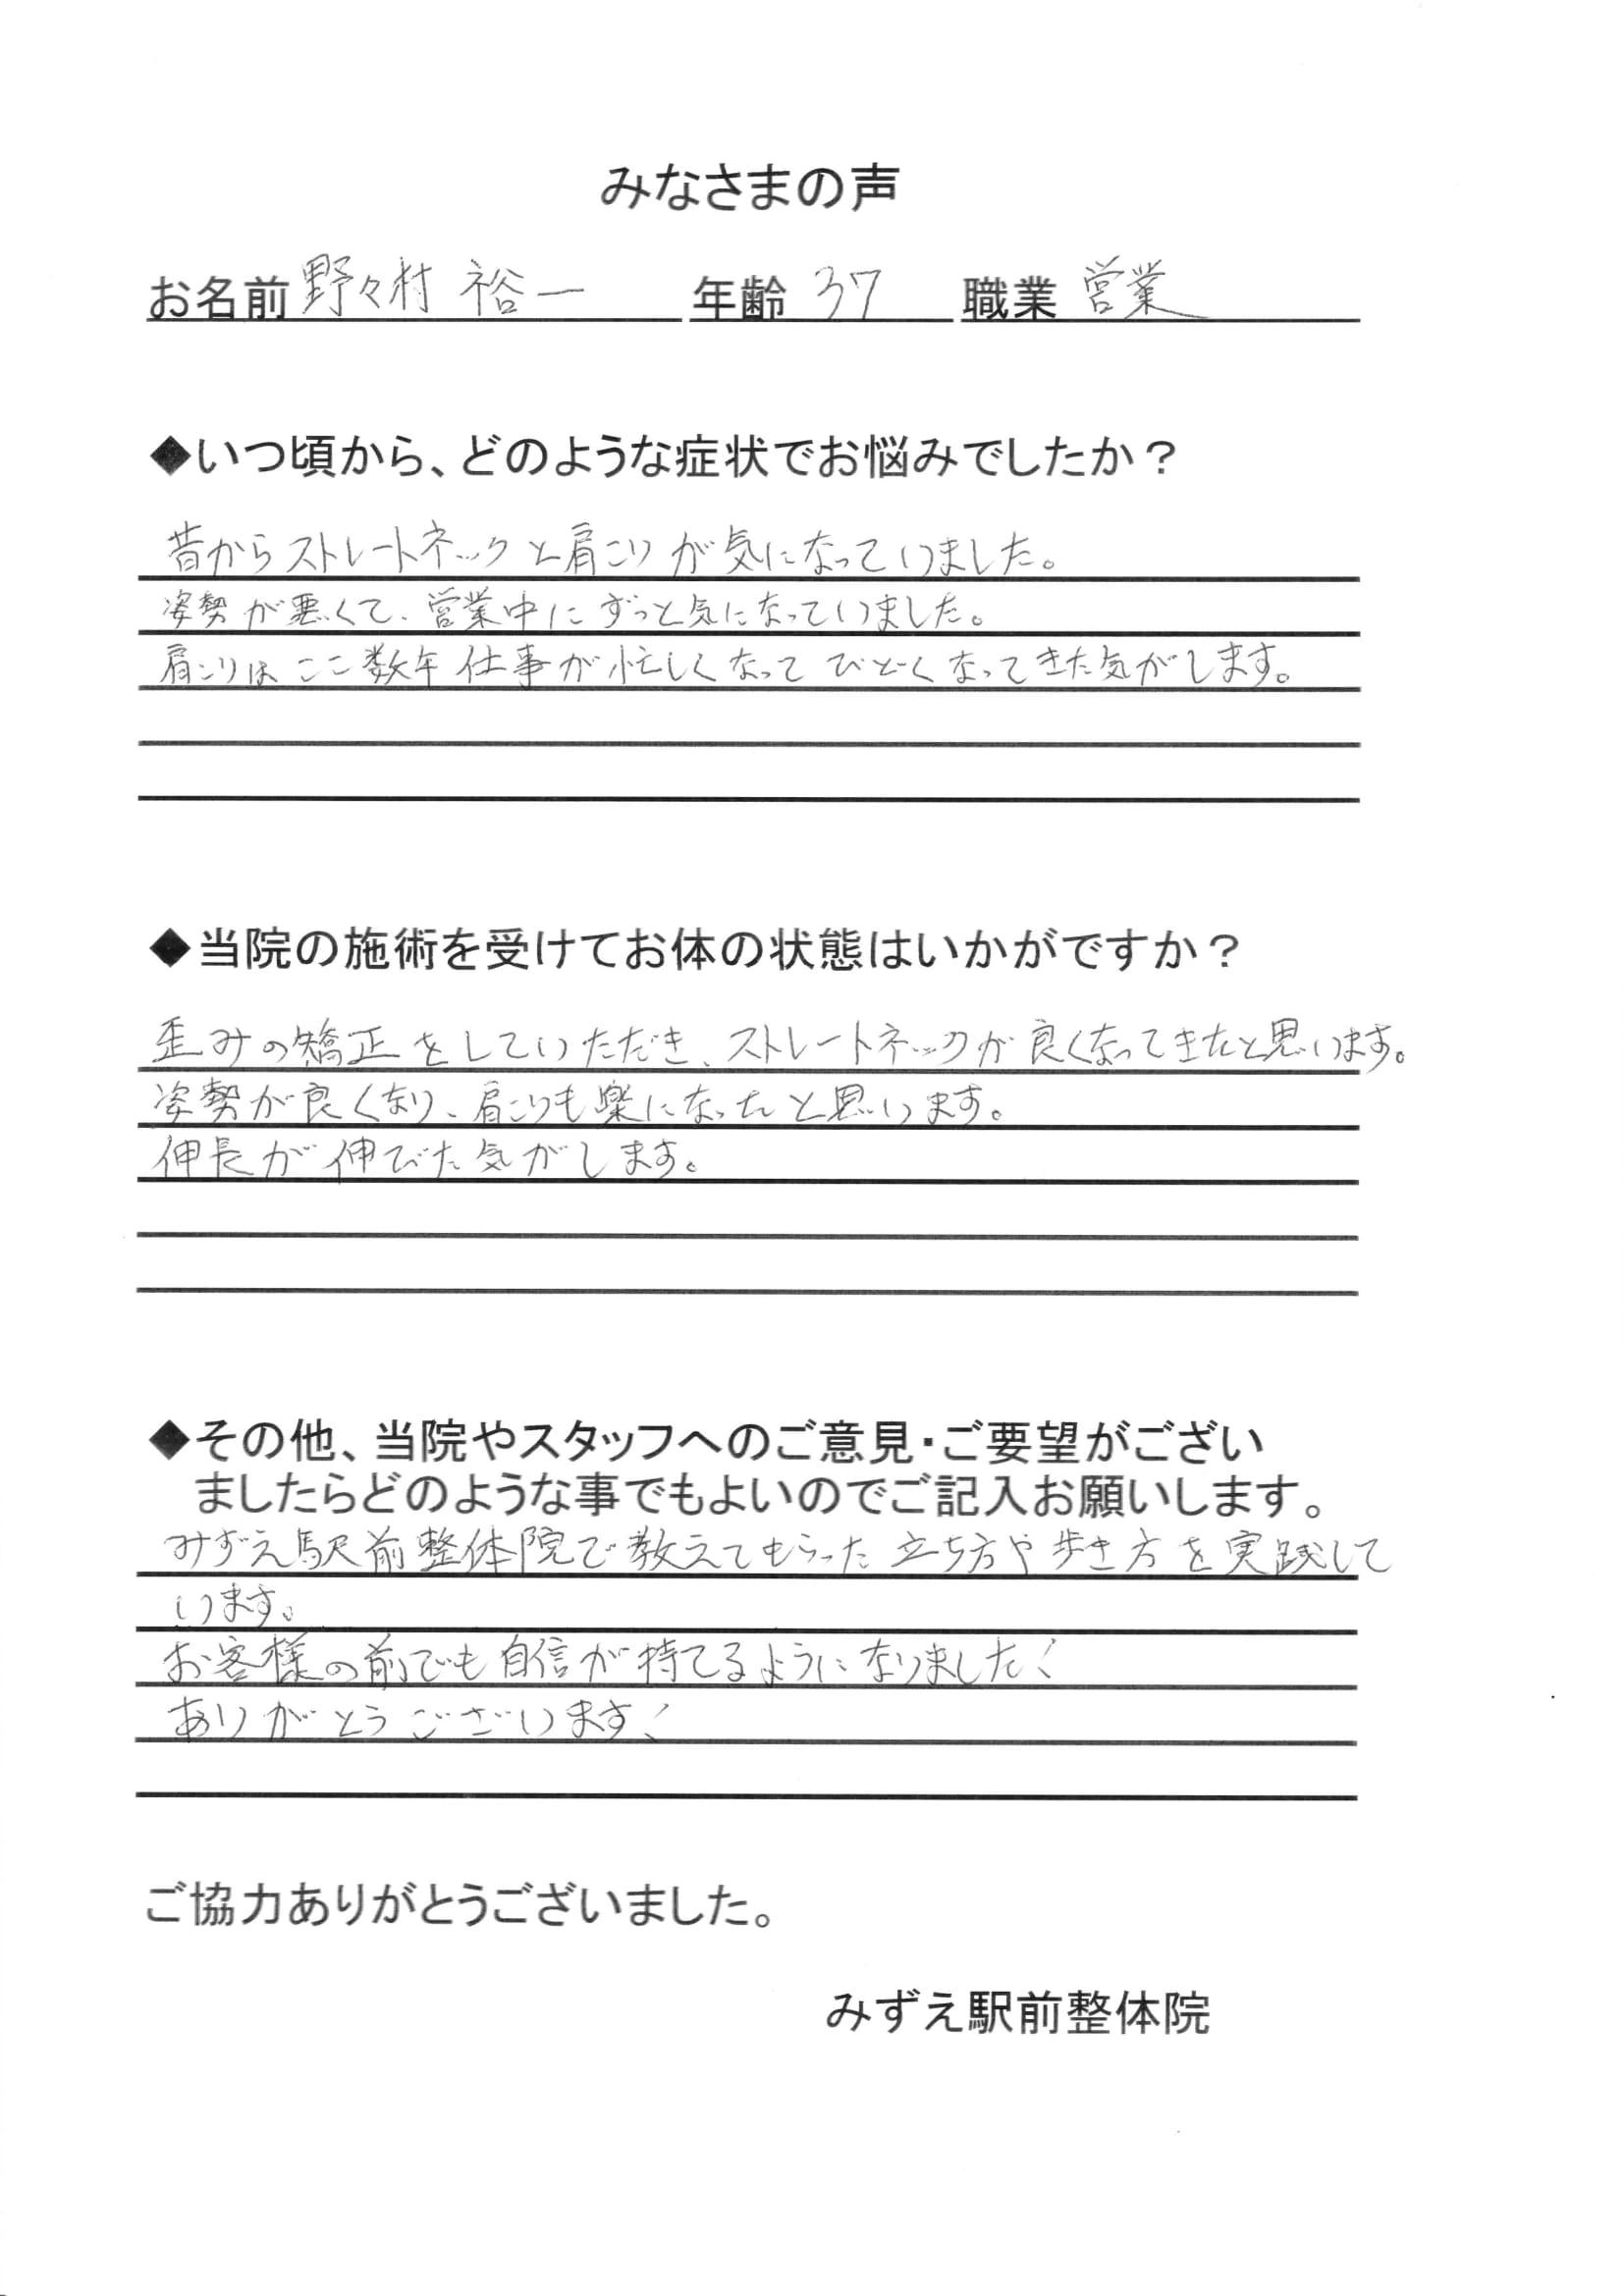 みなさまの声
お名前 野々村 裕一 年齢 37 職業 営業
◆いつ頃から、どのような症状でお悩みでしたか？
昔からストレートネックと肩こりが気になっていました。
姿勢が悪くて、営業中にずっと気になっていました。
肩こりはここ数年仕事が忙しくなってひどくなってきた気がします。
◆当院の施術を受けてお体の状態はいかがですか？
歪みの矯正をしていただき、ストレートネックが良くなってきたと思います。
姿勢が良くなり、肩こりも楽になったと思います。
伸長が伸びた気がします。
◆その他、当院やスタッフへのご意見・ご要望がござい
ましたらどのような事でもよいのでご記入お願いします。
みずえ駅前整体院で教えてもらった立ち方や歩き方を実践して
います。
お客様の前でも自信が持てるようになりました！
ありがとうございます！
ご協力ありがとうございました。
みずえ駅前整体院